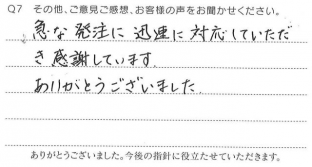 Q7 その他、ご意見ご感想、お客様の声をお聞かせください。
急な発注に迅速に対応していただ
き感謝しています。
ありがとうございました。
ありがとうございました。今後の指針に役立たせていただきます。